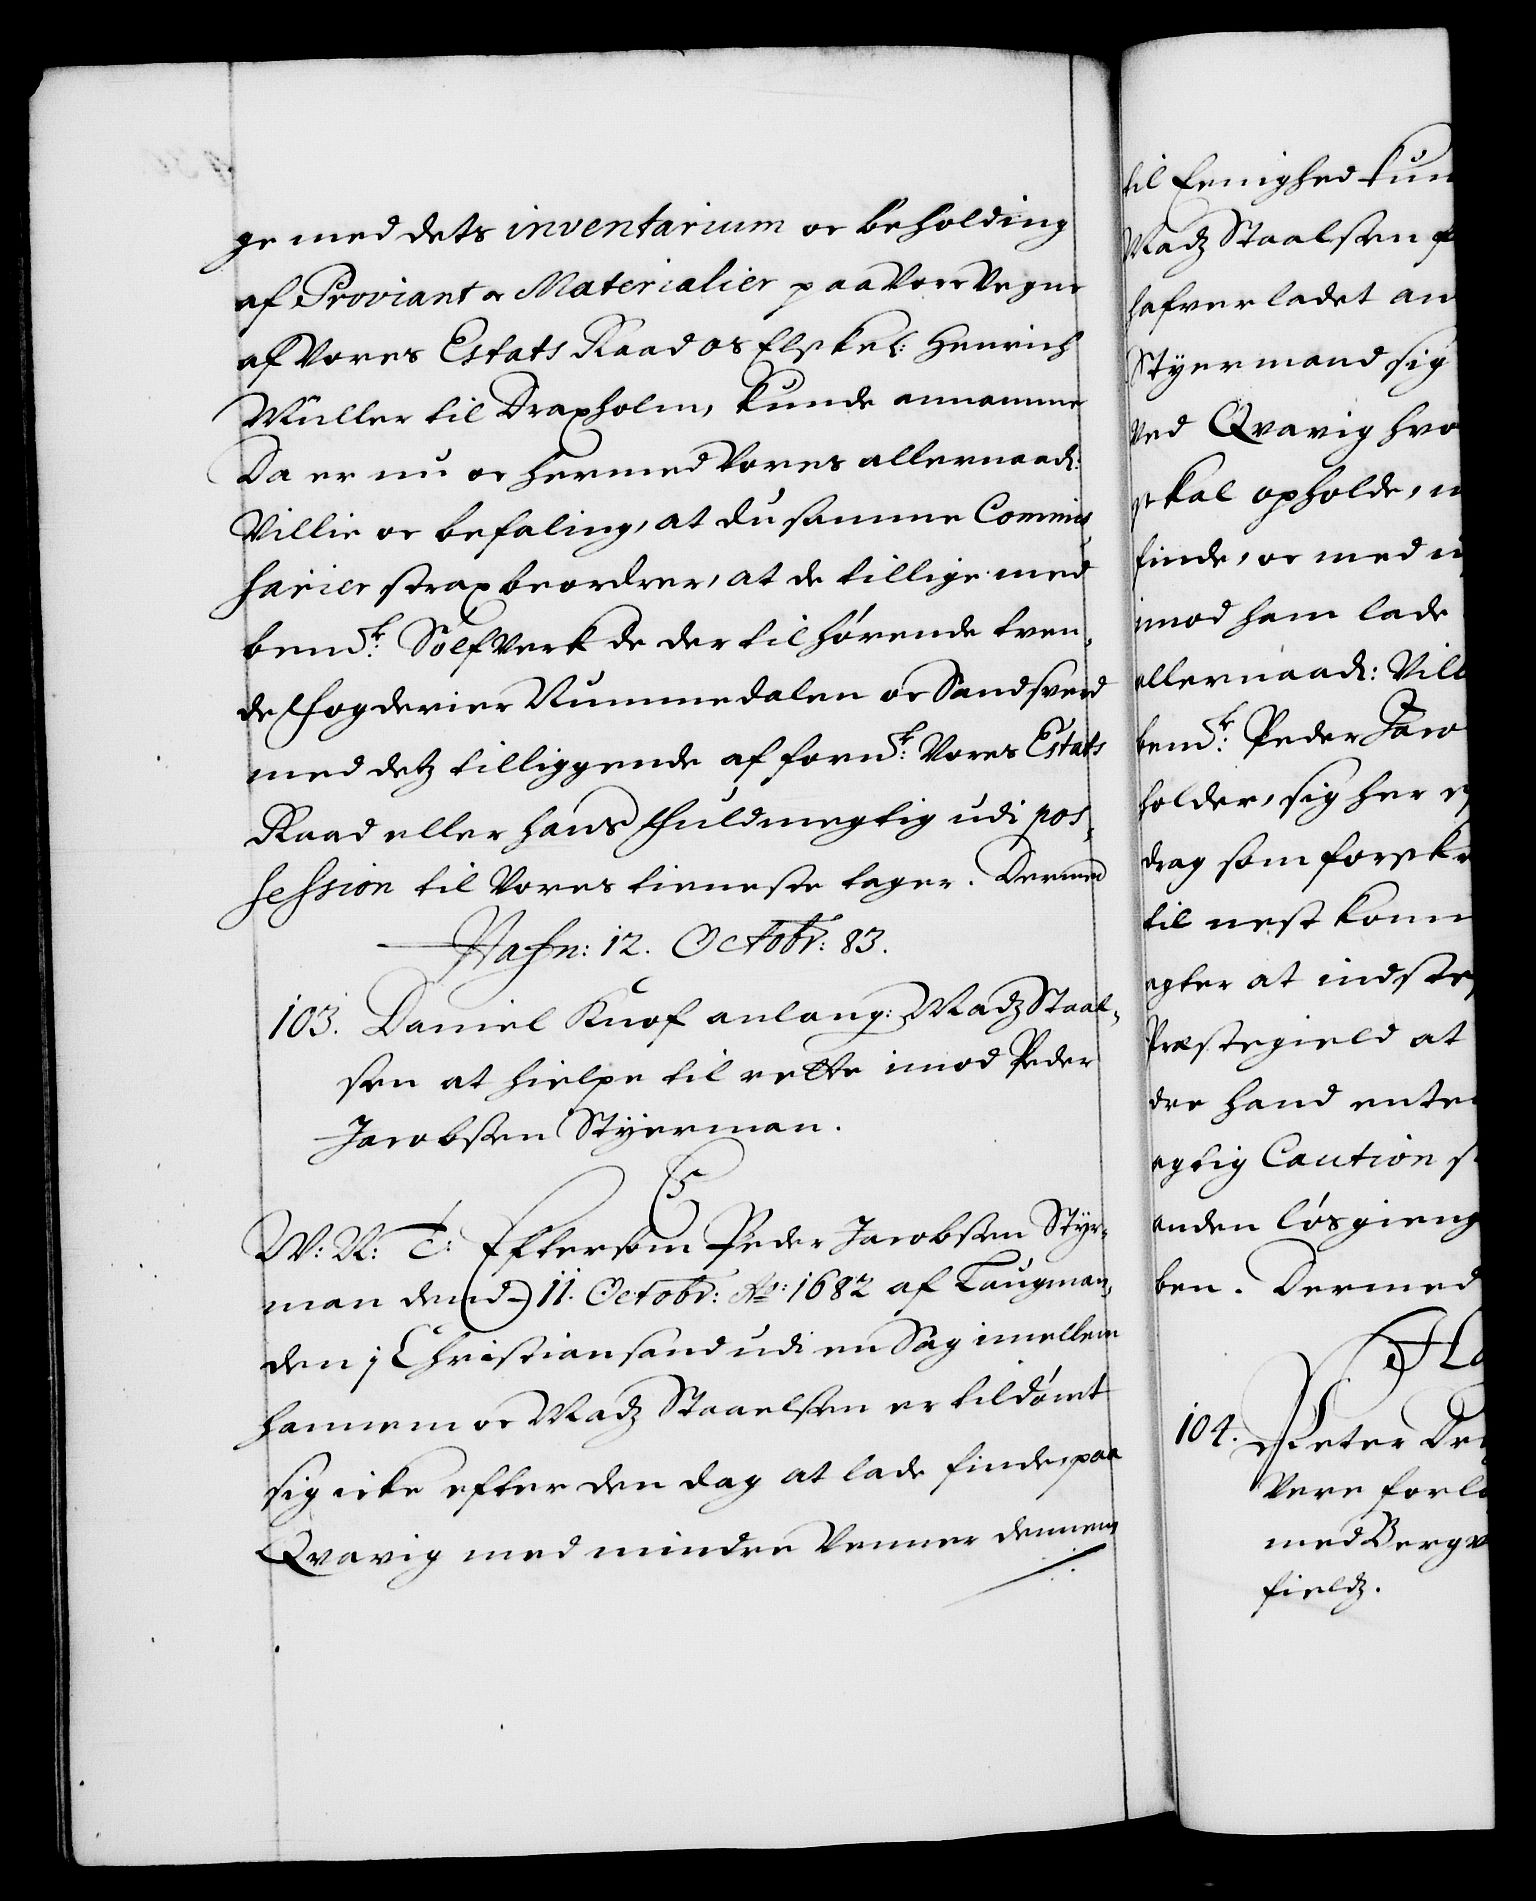 ge med dets inventarium oc beholding
af Proviant oc Materialier paa Vore Vegne
af Vores Estats Raad os Elskel: Henrich
Müller til Draxholm, kunde annamme
Da er nu oc hermed Vores allernaad:
Villie oc befaling, at du samme Commis,
sarier strax beordrer, at de tillige med
bemdt: Sölf Verk de der til hørende tven,
de fogderier Nummedalen oc Sandsverd
med detz tilliggende af forndt: Vores Estats
Raad eller hans fuldmegtig udi pos,
session til Vores tieneste tager. Dermed
Hafn: 12. Octobr: 83.
103. Daniel Knof anlang: Madz Staal,
sen at hielpe til rette imod Peder
Jacobsen Styerman.
C5
W: N: T: Eftersom Peder Jacobsen Styr,
man dend 11. Octobr: Ao: 1682 af Laugman,
den j Christiansand udi en Sag imellem
hannem oc Madz Staaelsen er tildømt
sig icke efter den dag at lade finde, paa
Qvavig med mindre Venner dennem
til Eenighed kun
Madz Staalsen
hafver ladet an
Styermand sig
ved Qvavig hvo
skal opholde,
finde, oc med
imod ham lade
allernaad: Vil
bemdt: Peder Jaco
holder, sig her
drag som forskr
til nest komm
agter at indste
Præstegield at
dre hand enten
agtig Caution s
anden løsgieng
ben. Dermed
Ha
104. Peter Dre
Vere forl
med Bergv
fieldz.